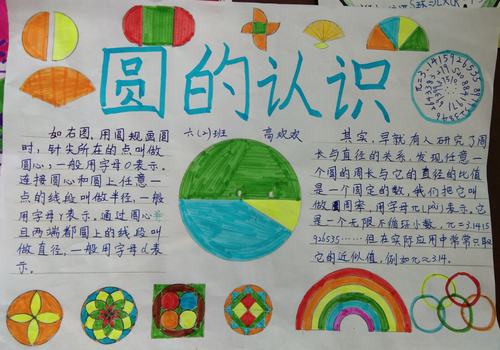 圆的认识
六(2)班
高欢欢
如右图，用圆规画圆
时，针尖所在的点叫做
圆心，一般用字母O表示。
连接圆心和圆上任意一
点的线段叫做半径，一般
用字母r表示。通过圆心并
且两端都圆上的线段叫
做直径，一般用字母d表
示。
其实，早就有人研究了周
长与直径的关系，发现任意一
个圆的周长与它的直径的比值
是一个固定的数，我们把它叫
做圆周率，用字母π(pài)表示。它
是一个无限不循环小数，π=3.1415
926535……但在实际应用中常常只取
它的近似值，例如π≈3.14。